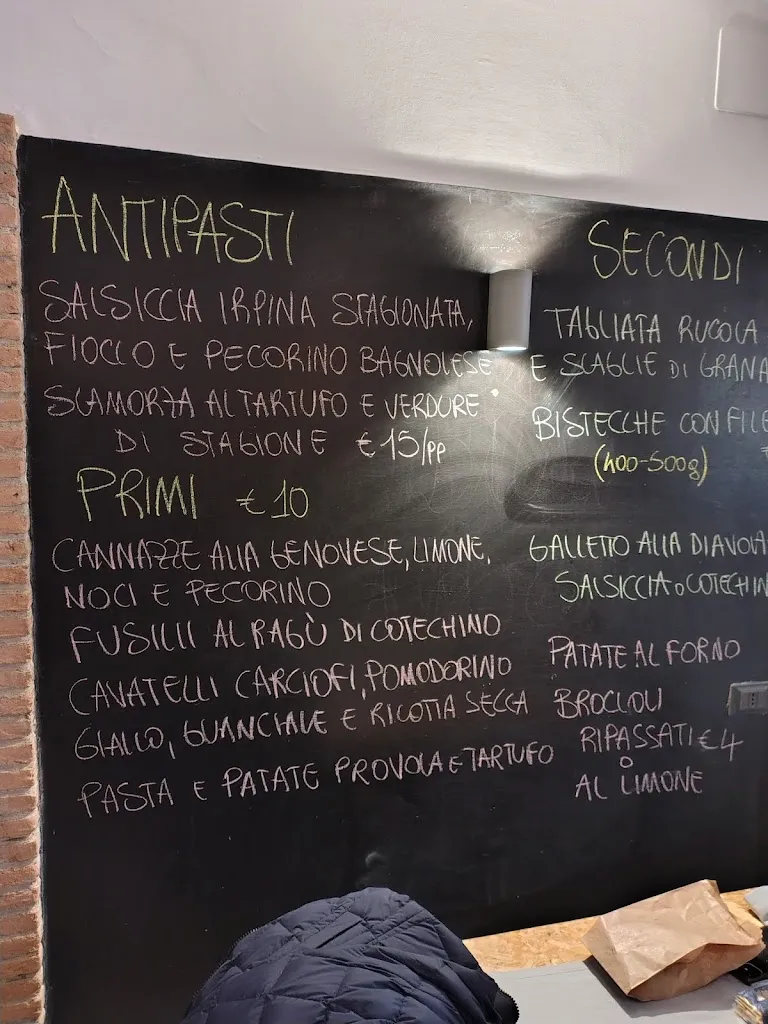 ANTIPASTI
SALSICCIA IRPINA STAGIONATA,
FIOCCO E PECORINO BAGNOLESE
SCAMORZA AL TARTUFO E VERDURE
DI STAGIONE €15/pp
PRIMI €10
CANNAZZE ALLA GENOVESE, LIMONE,
NOCI E PECORINO
FUSILLI AL RAGÙ DI COTECHINO
CAVATELLI CARCIOFI, POMODORINO
GIALLO, GUANCIALE E RICOTTA SECCA
PASTA E PATATE PROVOLA E TARTUFO
SECONDI
TAGLIATA RUCOLA
E SCAGLIE DI GRANA
BISTECCHE CON FILE
(400-500g)
GALLETTO ALLA DIAVOLA
SALSICCIA O COTECHIN
PATATE AL FORNO
BROCCOLI
RIPASSATI €4
O
AL LIMONE